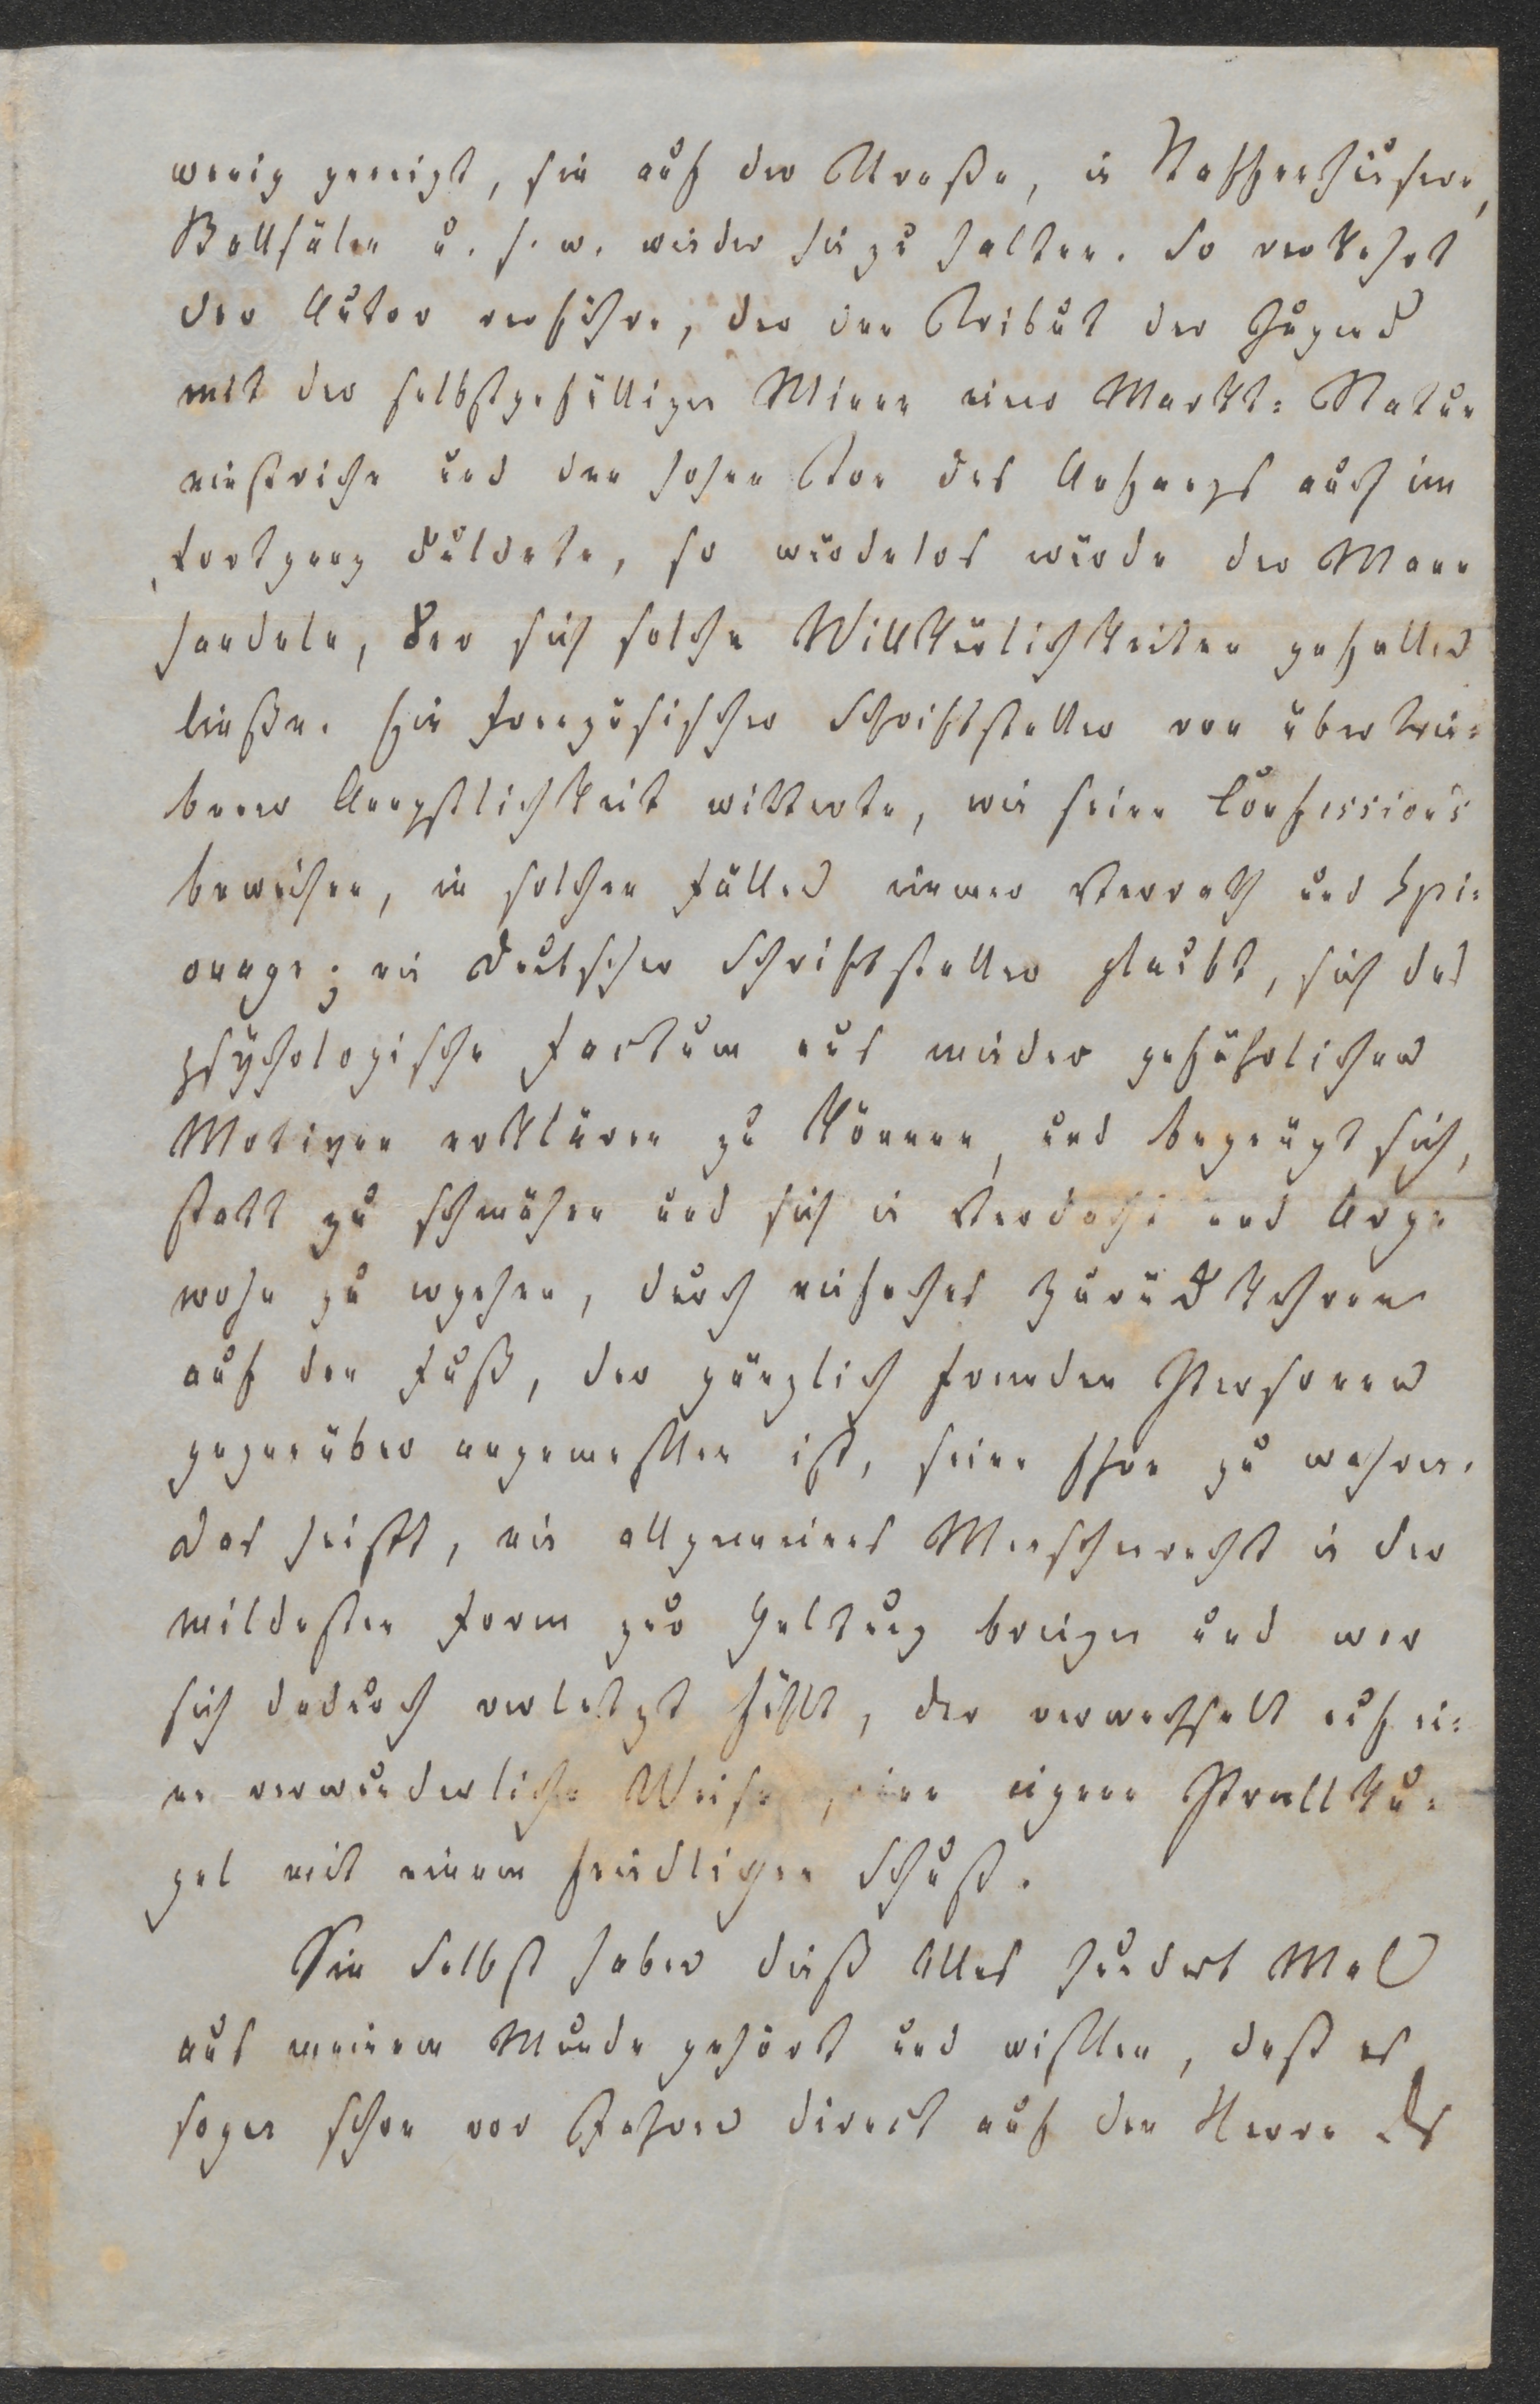 wenig geneigt, sie auf der Straße, in Kaffeehäusern,
Ballsälen u. s. w. wieder hin zu halten. So verkehrt
der Autor verführe, der den Tribut der Jugend
mit der selbstgefälligen Miene einer Markt-Natur
einstriche und den hohen Ton des Anfangs auch im
Fortgang duldete, so würdelos würde der Mann
handeln, der sich solche Willkürlichkeiten gefallen
ließe. Ein französischer Schriftsteller von übertrie-
bener Aengstlichkeit witterte, wie seine Confessions
beweisen, in solchen Fällen immer Verrath und Spi-
onage; ein deutscher Schriftsteller glaubt, sich das
psychologische Factum aus minder gefährlichen
Motiven erklären zu können, und begnügt sich,
statt zu schmähen und sich in Verdacht und Arg-
wohn zu ergehen, durch einfaches Zurückkehren
auf den Fuß, der gänzlich fremden Personen
gegenüber angemessen ist, seine Ehre zu wahren.
Das heißt, ein allgemeines Menschenrecht in der
mildesten Form zur Geltung bringen und wer
sich dadurch verletzt fühlt, der verwechselt auf ei-
ne verwunderliche Weise seine eigene Prallku-
gel mit einem feindlichen Schuß.
Sie selbst haben dieß Alles hundert Mal
aus meinem Munde gehört und wissen, daß es
sogar schon vor Jahren direct auf den Herrn Ds